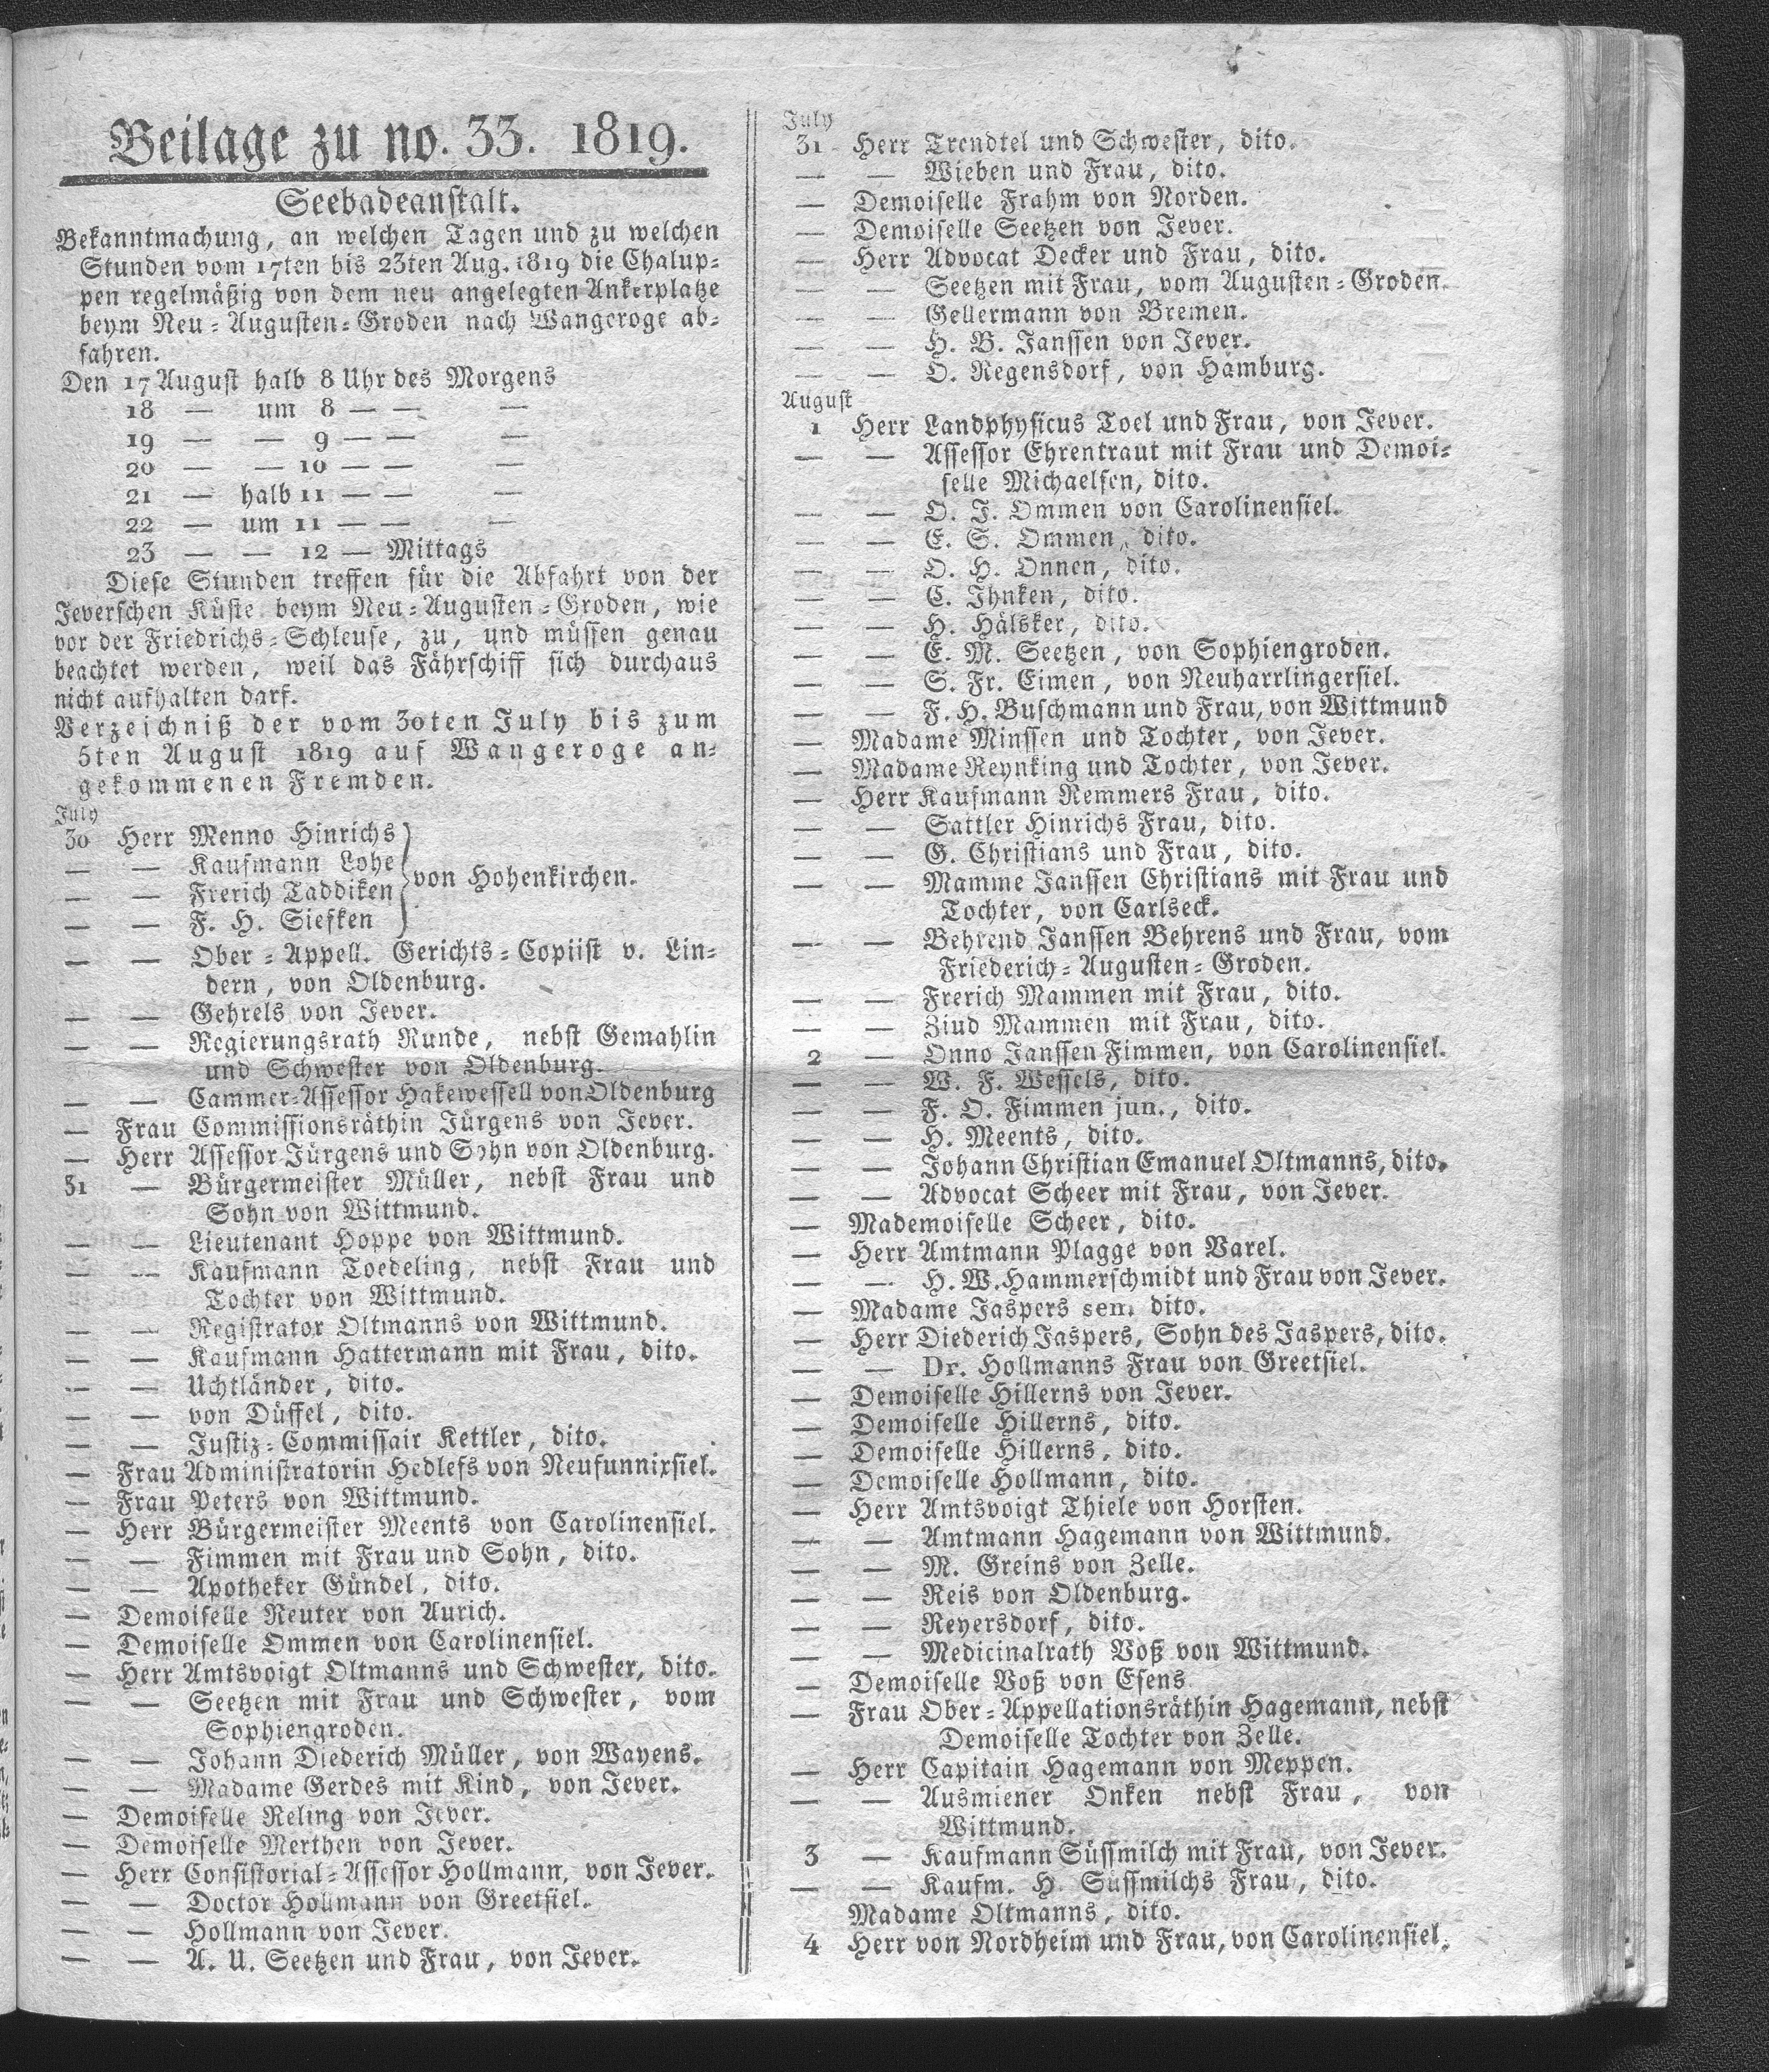 Beilage zu no. 33. 1819.
Seebadeanstalt.
Bekanntmachung, an welchen Tagen und zu welchen
Stunden vom 17ten bis 23ten Aug. 1819 die Chalup=
pen regelmäßig von dem neu angelegten Ankerplatze
beym Neu=Augusten=Groden nach Wangeroge ab=
fahren.
Den 17 August halb 8 Uhr des Morgens
18 — um 8 — — —
19 — — 9 — — —
20 — — 10 — — —
21 — halb 11 — — —
22 — um 11 — — —
23 — — 12 — Mittags
Diese Stunden treffen für die Abfahrt von der
Jeverschen Küste beym Neu=Augusten=Groden, wie
vor der Friedrichs=Schleuse, zu, und müssen genau
beachtet werden, weil das Fährschiff sich durchaus
nicht aufhalten darf.
Verzeichniß der vom 30ten July bis zum
5ten August 1819 auf Wangeroge an=
gekommenen Fremden.
July
30 Herr Menno Hinrichs
— — Kaufmann Lohe
— — Frerich Taddiken
von Hohenkirchen.
— — F. H. Siefken
— — Ober=Appell. Gerichts=Copiist v. Lin=
dern, von Oldenburg.
— — Gehrels von Jever.
— — Regierungsrath Runde, nebst Gemahlin
und Schwester von Oldenburg.
— — Cammer=Assessor Hakewessell von Oldenburg
— Frau Commissionsräthin Jürgens von Jever.
— Herr Assessor Jürgens und Sohn von Oldenburg.
31 — Bürgermeister Müller, nebst Frau und
Sohn von Wittmund.
— — Lieutenant Hoppe von Wittmund.
— — Kaufmann Toedeling, nebst Frau und
Tochter von Wittmund.
— — Registrator Oltmanns von Wittmund.
— — Kaufmann Hattermann mit Frau, dito.
— — Uchtländer, dito.
— — von Düffel, dito.
— — Justiz=Commissair Kettler, dito.
— Frau Administratorin Hedlefs von Neufunnixsiel.
— Frau Peters von Wittmund.
— Herr Bürgermeister Meents von Carolinensiel.
— — Fimmen mit Frau und Sohn, dito.
— — Apotheker Gündel, dito.
— Demoiselle Reuter von Aurich.
— Demoiselle Ommen von Carolinensiel.
— Herr Amtsvoigt Oltmanns und Schwester, dito.
— — Seetzen mit Frau und Schwester, vom
Sophiengroden.
— — Johann Diederich Müller, von Wayens.
— — Madame Gerdes mit Kind, von Jever.
— Demoiselle Reling von Jever.
— Demoiselle Merthen von Jever.
— Herr Consistorial=Assessor Hollmann, von Jever.
— — Doctor Hollmann von Greetsiel.
— — Hollmann von Jever.
— — A. U. Seetzen und Frau, von Jever.
July
31 Herr Trendtel und Schwester, dito.
— — Wieben und Frau, dito.
— Demoiselle Frahm von Norden.
— Demoiselle Seetzen von Jever.
— Herr Advocat Decker und Frau, dito.
— — Seetzen mit Frau, vom Augusten=Groden.
— — Gellermann von Bremen.
— — H. B. Janssen von Jever.
— — O. Regensdorf, von Hamburg.
August
1 Herr Landphysicus Toel und Frau, von Jever.
— — Assessor Ehrentraut mit Frau und Demoi=
selle Michaelsen, dito.
— — O. J. Ommen von Carolinensiel.
— — E. S. Ommen, dito.
— — O. H. Onnen, dito.
— — C. Ihnken, dito.
— — H. Hälsker, dito.
— — E. M. Seetzen, von Sophiengroden.
— — S. Fr. Eimen, von Neuharrlingersiel.
— — F. H. Buschmann und Frau, von Wittmund
— Madame Minssen und Tochter, von Jever.
— Madame Reynking und Tochter, von Jever.
— Herr Kaufmann Remmers Frau, dito.
— — Sattler Hinrichs Frau, dito.
— — G. Christians und Frau, dito.
— — Mamme Janssen Christians mit Frau und
Tochter, von Carlseck.
— — Behrend Janssen Behrens und Frau, vom
Friederich=Augusten=Groden.
— — Frerich Mammen mit Frau, dito.
— — Ziud Mammen mit Frau, dito.
2 — Onno Janssen Fimmen, von Carolinensiel.
— — W. F. Wessels, dito.
— — F. O. Fimmen jun., dito.
— — H. Meents, dito.
— — Johann Christian Emanuel Oltmanns, dito.
— — Advocat Scheer mit Frau, von Jever.
— Mademoiselle Scheer, dito.
— Herr Amtmann Plagge von Varel.
— — H. W. Hammerschmidt und Frau von Jever.
— Madame Jaspers sen. dito.
— Herr Diederich Jaspers, Sohn des Jaspers, dito.
— — Dr. Hollmanns Frau von Greetsiel.
— Demoiselle Hillerns von Jever.
— Demoiselle Hillerns, dito.
— Demoiselle Hillerns, dito.
— Demoiselle Hollmann, dito.
— Herr Amtsvoigt Thiele von Horsten.
— — Amtmann Hagemann von Wittmund.
— — M. Greins von Zelle.
— — Reis von Oldenburg.
— — Reyersdorf, dito.
— — Medicinalrath Voß von Wittmund.
— Demoiselle Voß von Esens
— Frau Ober=Appellationsräthin Hagemann, nebst
Demoiselle Tochter von Zelle.
— Herr Capitain Hagemann von Meppen.
— — Ausmiener Onken nebst Frau, von
Wittmund.
3 — Kaufmann Süssmilch mit Frau, von Jever.
— — Kaufm. H. Süssmilchs Frau, dito.
Madame Oltmanns, dito.
4 Herr von Nordheim und Frau, von Carolinensiel.